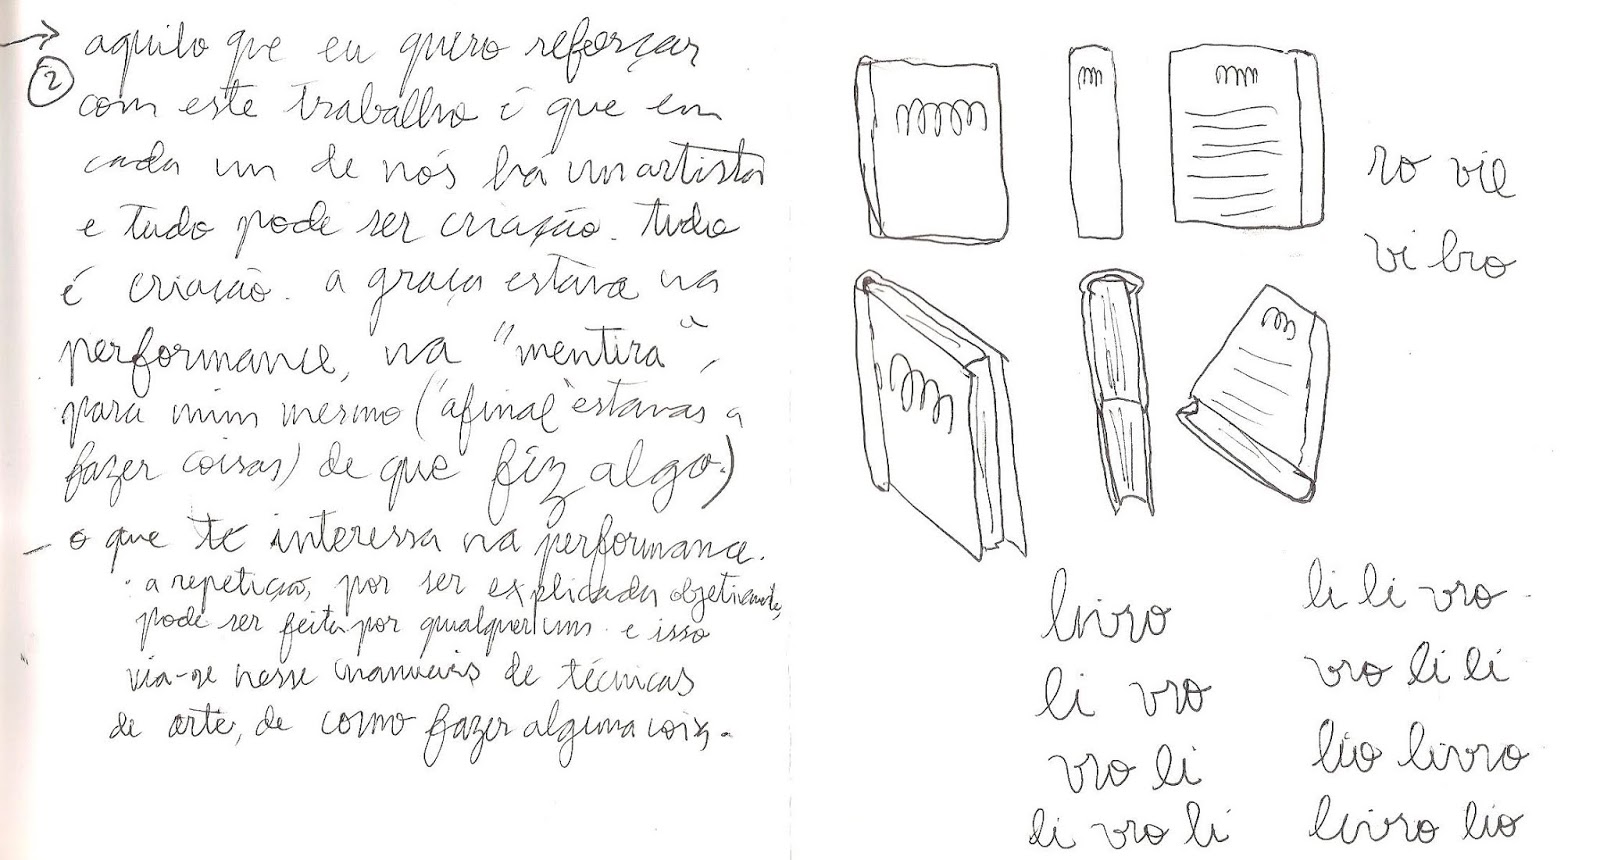 → aquilo que eu quero reforçar
② com este trabalho é que em
cada um de nós há um artista
e tudo pode ser criação. tudo
é criação. a graça estava na
performance, na "mentira",
para mim mesmo ("afinal estavas a
fazer coisas) de que fiz algo.)
- o que te interessa na performance.
a repetição, por ser explicada objetivamente,
pode ser feita por qualquer um. e isso
via-se nesse manuais de técnicas
de arte, de como fazer alguma coisa.
ro vie
vi bro
livro
li vro
vro li
li vro li
li li vro
vro li li
lio livro
livro lio